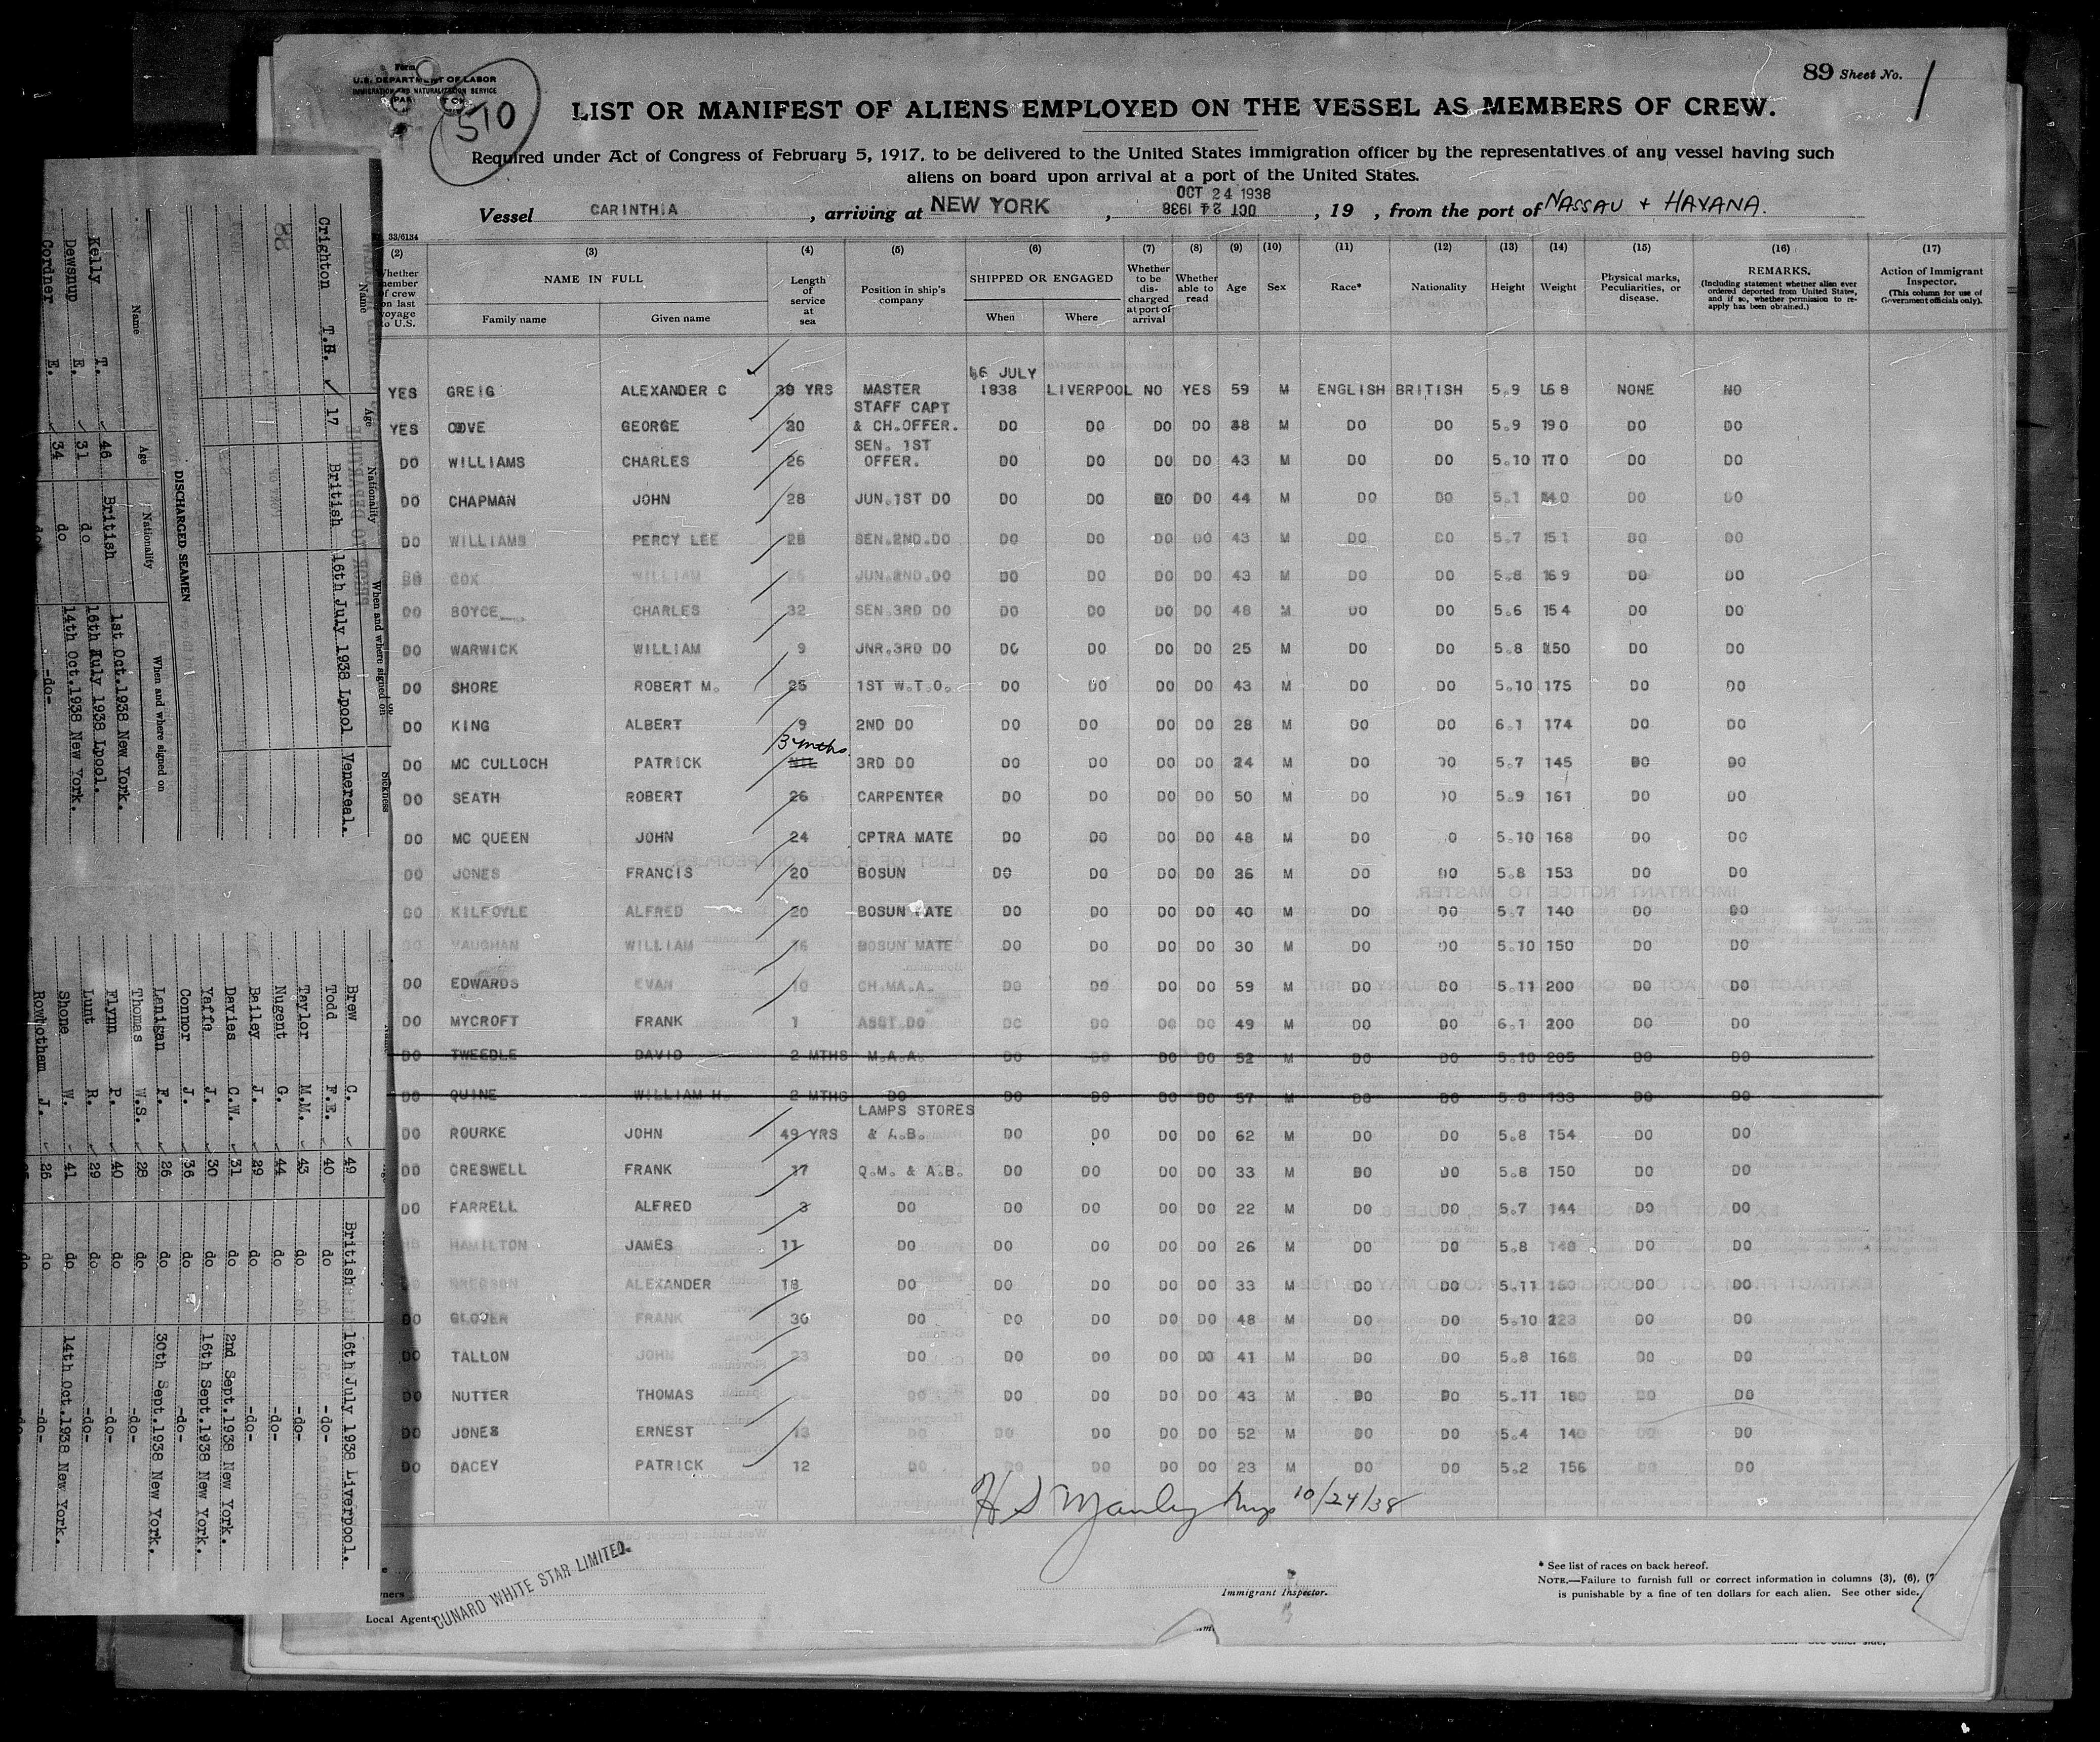 Form
U.S. DEPARTMENT OF LABOR
IMMIGRATION AND NATURALIZATION SERVICE
510
89 Sheet No. 1
LIST OR MANIFEST OF ALIENS EMPLOYED ON THE VESSEL AS MEMBERS OF CREW.
Required under Act of Congress of February 5, 1917, to be delivered to the United States immigration officer by the representatives of any vessel having such
aliens on board upon arrival at a port of the United States.
OCT 24 1938
Vessel CARINTHIA, arriving at NEW YORK, OCT 24 1938, 19 , from the port of NASSAU + HAVANA.
33/6134
(2) (3) (4) (5) (6) (7) (8) (9) (10) (11) (12) (13) (14) (15) (16) (17)
Whether member of crew on last voyage to U.S.
NAME IN FULL
Family name Given name
Length of service at sea
Position in ship's company
SHIPPED OR ENGAGED
When Where
Whether to be discharged at port of arrival
Whether able to read
Age
Sex
Race*
Nationality
Height
Weight
Physical marks, Peculiarities, or disease.
REMARKS.
(Including statement whether alien ever ordered deported from United States, and if so, whether permission to re-apply has been obtained.)
Action of Immigrant Inspector.
(This column for use of Government officials only).
16 JULY
YES GREIG ALEXANDER C YRS MASTER 1938 LIVERPOOL NO YES 59 M ENGLISH BRITISH 5.9 168 NONE NO
STAFF CAPT
YES COVE GEORGE 30 & CH.OFFER. DO DO DO DO 48 M DO DO 5.9 190 DO DO
SEN. 1ST
DO WILLIAMS CHARLES 26 OFFER. DO DO DO DO 43 M DO DO 5.10 170 DO DO
DO CHAPMAN JOHN 28 JUN.1ST DO DO DO DO DO 44 M DO DO 5.1 DO DO
DO WILLIAMS PERCY LEE 28 SEN.2ND.DO DO DO DO DO 43 M DO DO 5.7 151 DO DO
DO COX WILLIAM JUN.2ND.DO DO DO DO DO 43 M DO DO 5.8 169 DO DO
DO BOYCE CHARLES 32 SEN.3RD DO DO DO DO DO 48 M DO DO 5.6 154 DO DO
DO WARWICK WILLIAM 9 JNR.3RD DO DO DO DO DO 25 M DO DO 5.8 150 DO DO
DO SHORE ROBERT M. 25 1ST W.T.O. DO DO DO DO 43 M DO DO 5.10 175 DO DO
DO KING ALBERT 9 2ND DO DO DO DO DO 28 M DO DO 6.1 174 DO DO
3 mths.
DO MC CULLOCH PATRICK NIL 3RD DO DO DO DO DO 24 M DO DO 5.7 145 DO DO
DO SEATH ROBERT 26 CARPENTER DO DO DO DO 50 M DO DO 5.9 161 DO DO
DO MC QUEEN JOHN 24 CPTRA MATE DO DO DO DO 48 M DO O 5.10 168 DO DO
DO JONES FRANCIS 20 BOSUN DO DO DO DO 36 M DO DO 5.8 153 DO DO
DO KILFOYLE ALFRED 20 BOSUN MATE DO DO DO DO 40 M DO DO 5.7 140 DO DO
DO VAUGHAN WILLIAM 16 BOSUN MATE DO DO DO DO 30 M DO DO 5.10 150 DO DO
DO EDWARDS EVAN 10 CH.MA.A. DO DO DO DO 59 M DO DO 5.11 200 DO DO
DO MYCROFT FRANK 1 ASST DO DO DO DO DO 49 M DO DO 6.1 200 DO DO
DO TWEEDLE DAVID 2 MTHS M.A.A. DO DO DO DO 52 M DO DO 5.10 205 DO DO
DO QUINE WILLIAM H. 2 MTHS DO DO DO DO DO 57 M DO DO 5.8 133 DO DO
LAMPS STORES
DO ROURKE JOHN 49 YRS & A.B. DO DO DO DO 62 M DO DO 5.8 154 DO DO
DO CRESWELL FRANK 17 Q.M. & A.B. DO DO DO DO 33 M DO DO 5.8 150 DO DO
DO FARRELL ALFRED 3 DO DO DO DO DO 22 M DO DO 5.7 144 DO DO
HAMILTON JAMES 11 DO DO DO DO DO 26 M DO DO 5.8 148 DO DO
DO GREGSON ALEXANDER 18 DO DO DO DO DO 33 M DO DO 5.11 160 DO DO
DO GLOVER FRANK 30 DO DO DO DO DO 48 M DO DO 5.10 223 DO DO
DO TALLON JOHN 23 DO DO DO DO DO 41 M DO DO 5.8 168 DO DO
DO NUTTER THOMAS DO DO DO DO DO 43 M DO DO 5.11 180 DO DO
DO JONES ERNEST 13 DO DO DO DO DO 52 M DO DO 5.4 140 DO DO
DO DACEY PATRICK 12 DO DO DO DO DO 23 M DO DO 5.2 156 DO DO
H S Manley Insp 10/24/38
CUNARD WHITE STAR LIMITED.
Local Agents
Immigrant Inspector.
* See list of races on back hereof.
NOTE.—Failure to furnish full or correct information in columns (3), (6), (7
is punishable by a fine of ten dollars for each alien. See other side.
88
Name Age Nationality When and where signed on Sickness
Crighton T.H. 17 British 16th July 1938 Lpool Venereal.
DISCHARGED SEAMEN
Name Age Nationality When and where signed on
Kelly T. 46 British 1st Oct.1938 New York.
Dewsnup E. 31 do 16th July 1938 Lpool.
Cordner E. 34 do 14th Oct.1938 New York.
do -do-
Brew C. 49 British 16th July 1938 Liverpool.
Todd F.E. 40 do -do-
Taylor M.M. 43 do -do-
Nugent G. 44 do -do-
Bailey L. 29 do -do-
Davies C.W. 31 do 2nd Sept.1938 New York.
Yaffe J. 30 do 16th Sept.1938 New York.
Connor J. 36 do -do-
Lanigan F. 26 do 30th Sept.1938 New York.
Thomas W.S. 28 do -do-
Flynn P. 40 do -do-
Lunt R. 29 do -do-
Shone W. 41 do 14th Oct.1938 New York.
Rowbotham J. 26 do -do-
do -do-